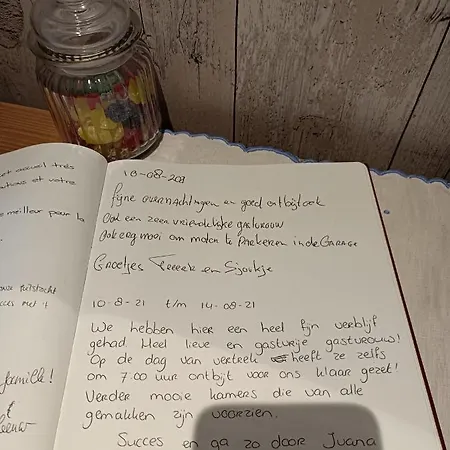 et accueil très
tions et votre
e meilleur pour la
famille!
10-08-20
fijne overnachtingen en goed ontbijt ook
Ook een zeer vriendelijke gastvrouw
Ook erg mooi om motor te Parkeren in de Garage
Groetjes en Sjoukje
10-8-21 t/m 14-08-21
We hebben hier een heel fijn verblijf
gehad. Heel lieve en gastvrije gastvrouw!
Op de dag van vertrek heeft ze zelfs
om 7.00 uur ontbijt voor ons klaar gezet!
Verder mooie kamers die van alle
gemakken zijn voorzien.
Succes en ga zo door Juana